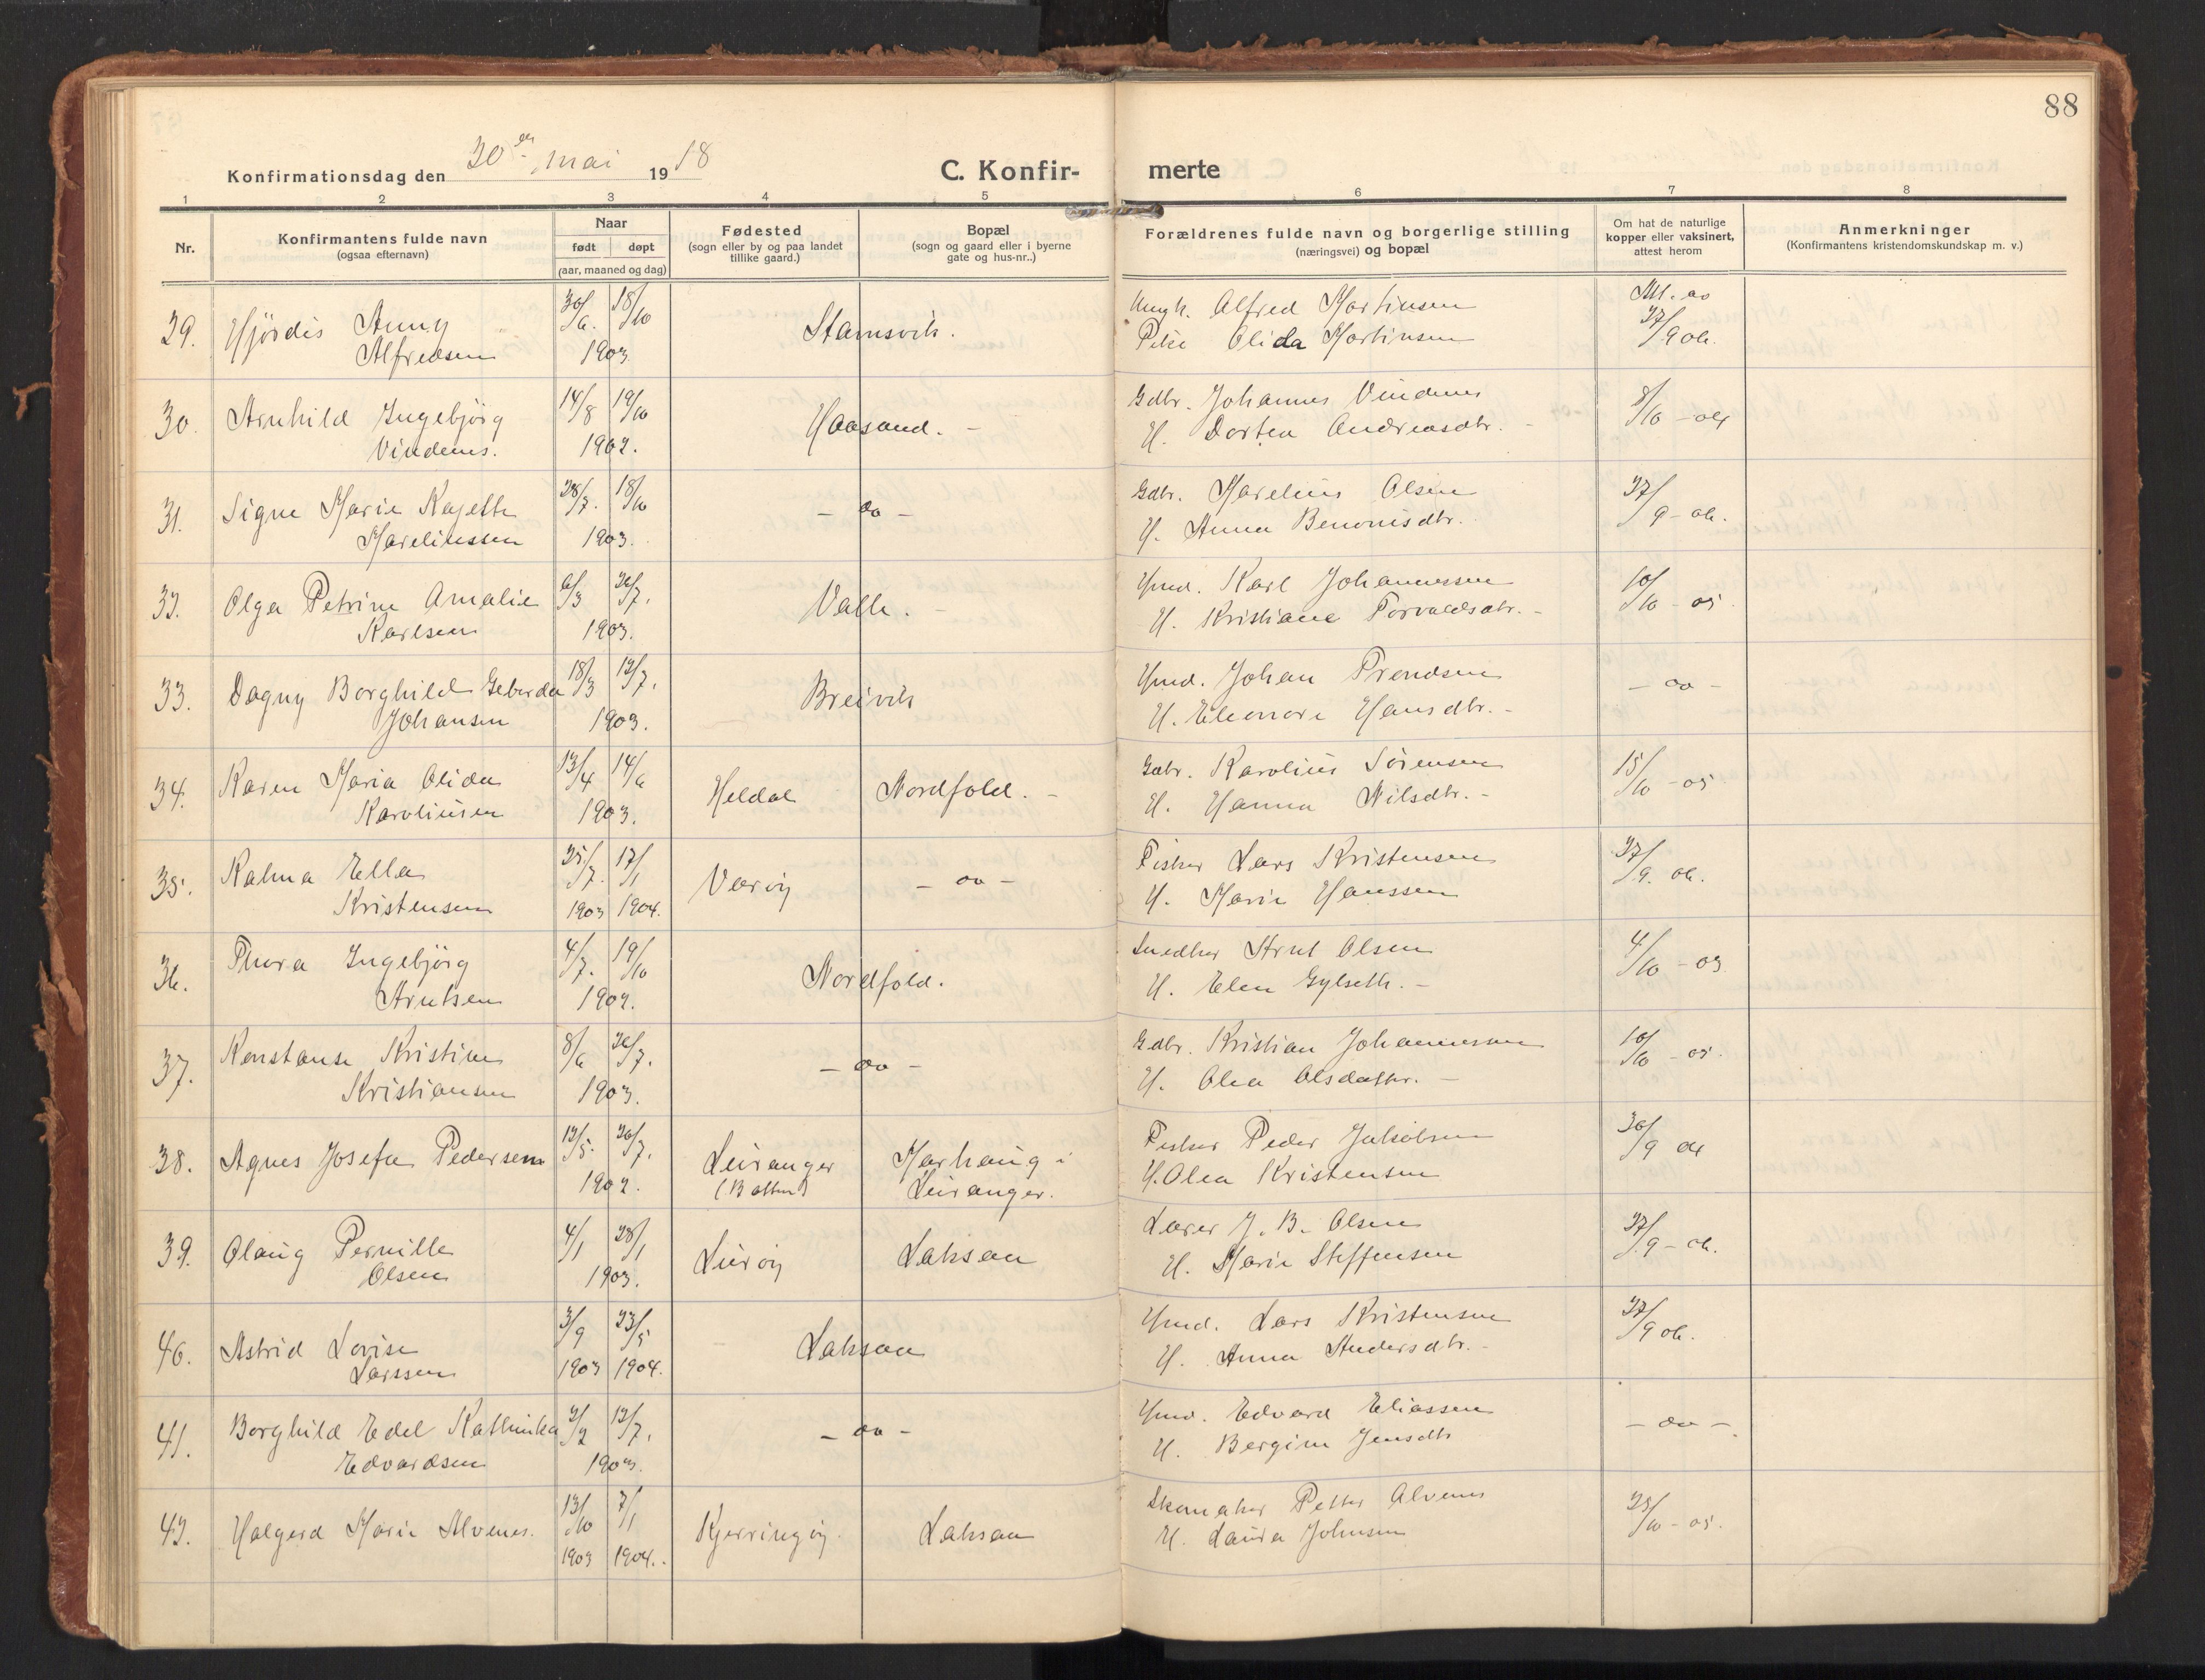 88
Konfirmationsdag den 30te mai 1918
C. Konfir-
merte
1 2 3 4 5 6 7 8
Nr.
Konfirmantens fulde navn
(ogsaa efternavn)
Naar
født døpt
(aar, maaned og dag)
Fødested
(sogn eller by og paa landet
tillike gaard.)
Bopæl
(sogn og gaard eller i byerne
gate og hus-nr..)
Forældrenes fulde navn og borgerlige stilling
(næringsvei) og bopæl
Om hat de naturlige
kopper eller vaksinert,
attest herom
Anmerkninger
(Konfirmantens kristendomskundskap m. v.)
29. Hjördis Anny 30/6. 18/10 Stamsvik. Ungk. Alfred Martinsen
Alfredsen 1903 Pike Olida Martinsen 27/9 06.
30. Arnhild Ingebjörg 14/8 19/10 Haasand. - Gdbr. Johannes Vindenes 8/10 - 04
Vindenes. 1902. H. Dortea Andreasdtr. -
31. Signe Marie Kajette 28/7. 18/10 - do - Gdbr. Marelius Olsen 27/9 - 06.
Mareliussen 1903. H. Anna Benonisdtr.
32. Olga Petrine Amalie 6/3 26/7. Valle. - Hmd. Karl Johannessen 10/10 - 05
Karlsen 1903. H. Kristiane Torvaldsdtr. -
33. Dagny Borghild Geburda 18/3 12/7. Breivik Hmd. Johan Trondsen - do -
Johansen 1903. H. Eleonore Hansdtr. -
34. Karen Maria Olida 13/4 14/6 Heldal Nordfold. - Gdbr. Karolius Sörensen 15/10 - 05
Karoliusen 1903. H. Hanna Nilsdtr. -
35. Kalma Ella 25/7. 17/1 Væröy - do - Fisker Lars Kristensen 27/9. 06.
Kristensen 1903 1904. H. Marie Hanssen
36. Thora Ingebjörg 4/7. 19/10 Nordfold. Snedker Arnt Olsen 4/10 - 03
Arntsen 1902. H. Elen Gylseth. -
37. Konstanse Kristine 8/6 26/7. - do - Gdbr. Kristian Johannessen 10/10 - 05.
Kristiansen 1903. H. Olea Olsdatter. -
38. Agnes Josefa Pedersen 12/5. 20/7. Leiranger Marhaug i Fisker Peder Jakobsen 30/9 04
1902. (Botten) Leiranger. H. Olea Kristensen
39. Olaug Pernille 4/1 28/1 Luröy Laksaa Lærer J. B. Olsen 27/9 - 06.
Olsen 1903. H. Marie Steffensen
40. Astrid Lovise 3/9 23/5 Laksaa Hmd. Lars Kristensen 27/9 06.
Larssen 1903 1904. H. Anna Andersdtr. -
41. Borghild Edel Kathinka 2/2 12/7. - do - Hmd. Edvard Eliassen - do -
Edvardsen 1903. H. Bergine Jensdtr
42. Halgerd Marie Alvenes. 13/10 7/1 Kjerringöy. Laksaa Skomaker Petter Alvenes 25/10 - 05.
1903 1904. H. Laura Johnsen